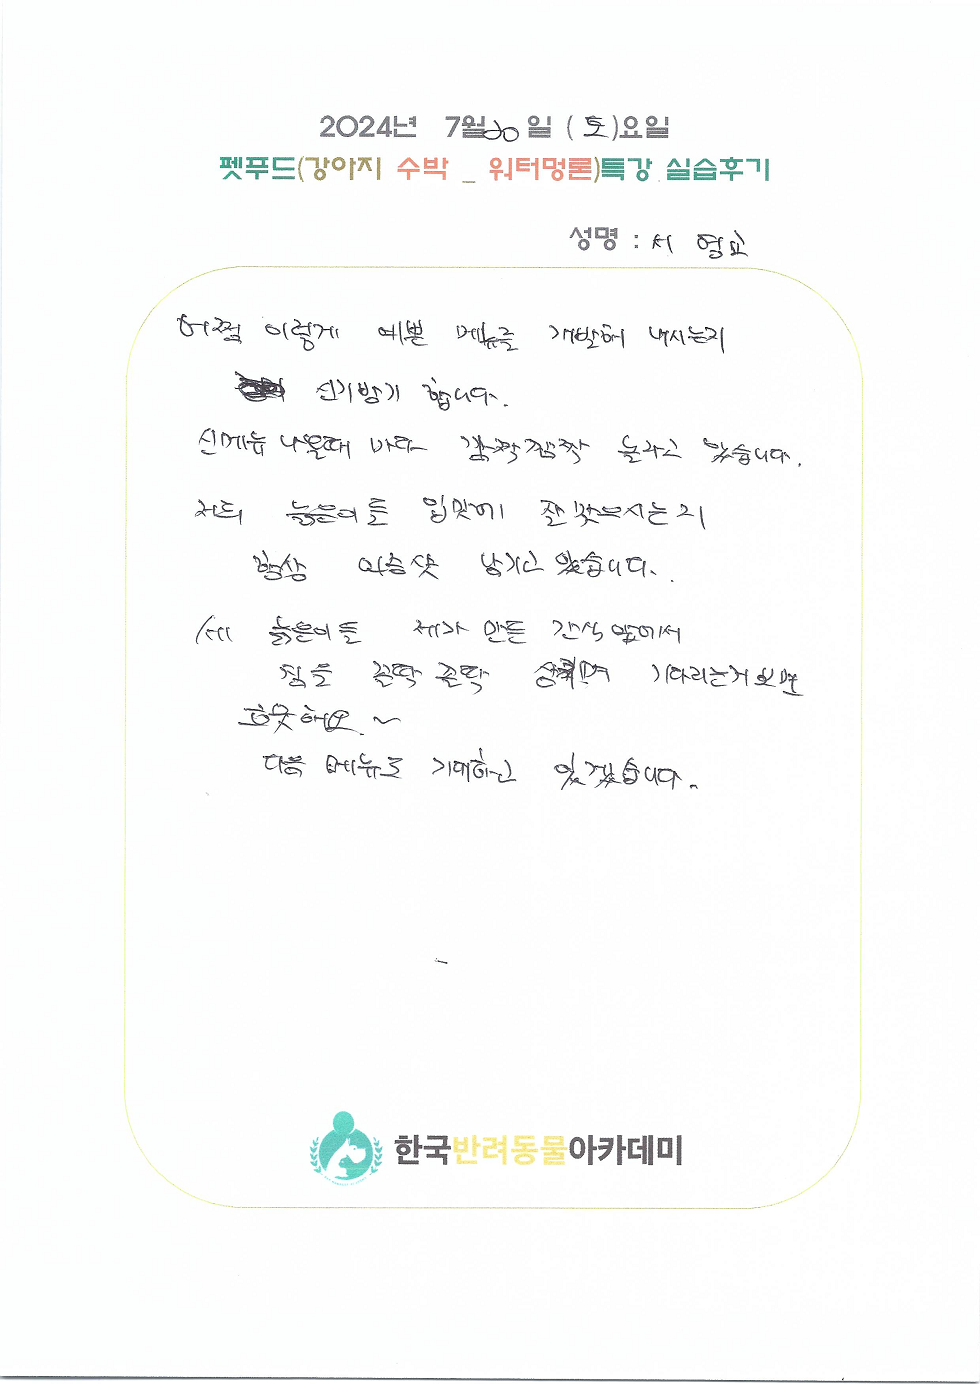 2024년 7월 20 일 (토)요일
펫푸드(강아지 수박 _ 워터멍론)특강 실습후기
성명 : 서 영교
어쩜 이렇게 예쁜 메뉴를 개발해 내시는지
신기방기 합니다.
신메뉴 나올때 마다 깜짝깜짝 놀라고 있습니다.
저희 늙은이들 입맛에 잘 맞으시는지
항상 인증샷 남기고 있습니다.
늙은이들 제가 만든 간식 앞에서
침을 꼴딱 꼴딱 삼키며 기다리는거 보면
흐뭇해요 ~
다음 메뉴도 기대하고 있겠습니다.
한국반려동물아카데미